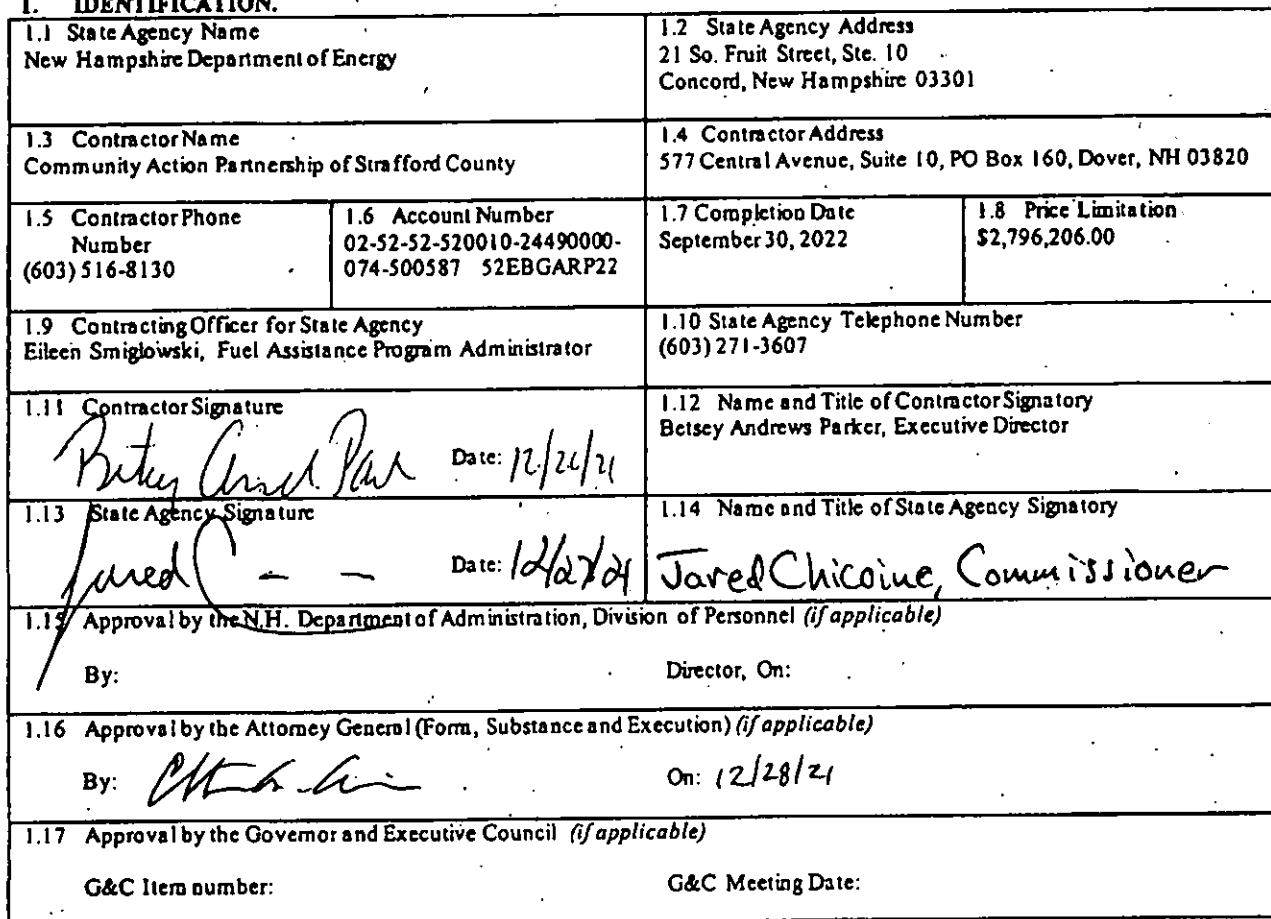 1. IDENTIFICATION.
1.1 State Agency Name
New Hampshire Department of Energy
1.2 State Agency Address
21 So. Fruit Street, Ste. 10
Concord, New Hampshire 03301
1.3 Contractor Name
Community Action Partnership of Strafford County
1.4 Contractor Address
577 Central Avenue, Suite 10, PO Box 160, Dover, NH 03820
1.5 Contractor Phone
Number
(603) 516-8130
1.6 Account Number
02-52-52-520010-24490000-
074-500587 52EBGARP22
1.7 Completion Date
September 30, 2022
1.8 Price Limitation
$2,796,206.00
1.9 Contracting Officer for State Agency
Eileen Smiglowski, Fuel Assistance Program Administrator
1.10 State Agency Telephone Number
(603) 271-3607
1.11 Contractor Signature
Date: 12/26/21
1.12 Name and Title of Contractor Signatory
Betsey Andrews Parker, Executive Director
1.13 State Agency Signature
Jared C
Date: 12/27/21
1.14 Name and Title of State Agency Signatory
Jared Chicoine, Commissioner
1.15 Approval by the N.H. Department of Administration, Division of Personnel (if applicable)
By: Director, On:
1.16 Approval by the Attorney General (Form, Substance and Execution) (if applicable)
By: On: 12/28/21
1.17 Approval by the Governor and Executive Council (if applicable)
G&C Item number: G&C Meeting Date: